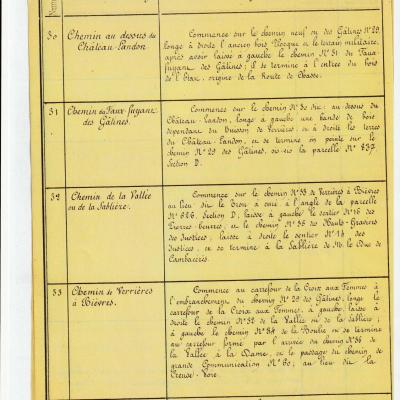 30
Chemin au dessus du
Château-Landon
Commence sur le chemin neuf ou des Gâtines N° 29,
longe à droite l'ancien bois Blocque et le terrain militaire,
après avoir laissé à gauche le chemin N° 31 du Faux-
fuyant des Gâtines; il se termine à l'entrée du bois
de l'Etat, origine de la Route de Chasse.
31
Chemin du Faux-fuyant
des Gâtines.
Commence sur le chemin N° 30 dit: au dessus du
Château-Landon, longe à gauche une bande de bois
dépendant du Buisson de Verrières et à droite les terres
du Château-Landon, et se termine en pointe sur le
chemin N° 29 des Gâtines, vis-à-vis la parcelle N° 837
Section D.
32
Chemin de la Vallée
ou de la Sablière.
Commence sur le chemin N° 33 de Verrières à Bièvres
au lieu dit le Trou à oui à l'angle de la parcelle
N° 626, Section D, laisse à gauche le sentier N° 16 des
Pierres-beurres, et le chemin N° 35 des Hauts-Graviers
des Justices; laisse à droite le sentier N° 14 des
Justices, et se termine à la Sablière de Mr. le Duc de
Cambacérès.
33
Chemin de Verrières
à Bièvres.
Commence au carrefour de la Croix aux Femmes à
l'embranchement du chemin N° 29 des Gâtines, longe le
carrefour de la Croix aux Femmes, à gauche, laisse à
droite le chemin N° 32 de la Vallée ou de la Sablière;
à gauche le chemin N° 34 de la Boulie et se termine
au carrefour formé par l'arrivée du chemin N° 36 de
la Vallée à la Dame, et le passage du chemin de
grande Communication N° 60, au lieu dit la
Creuse-Voie.